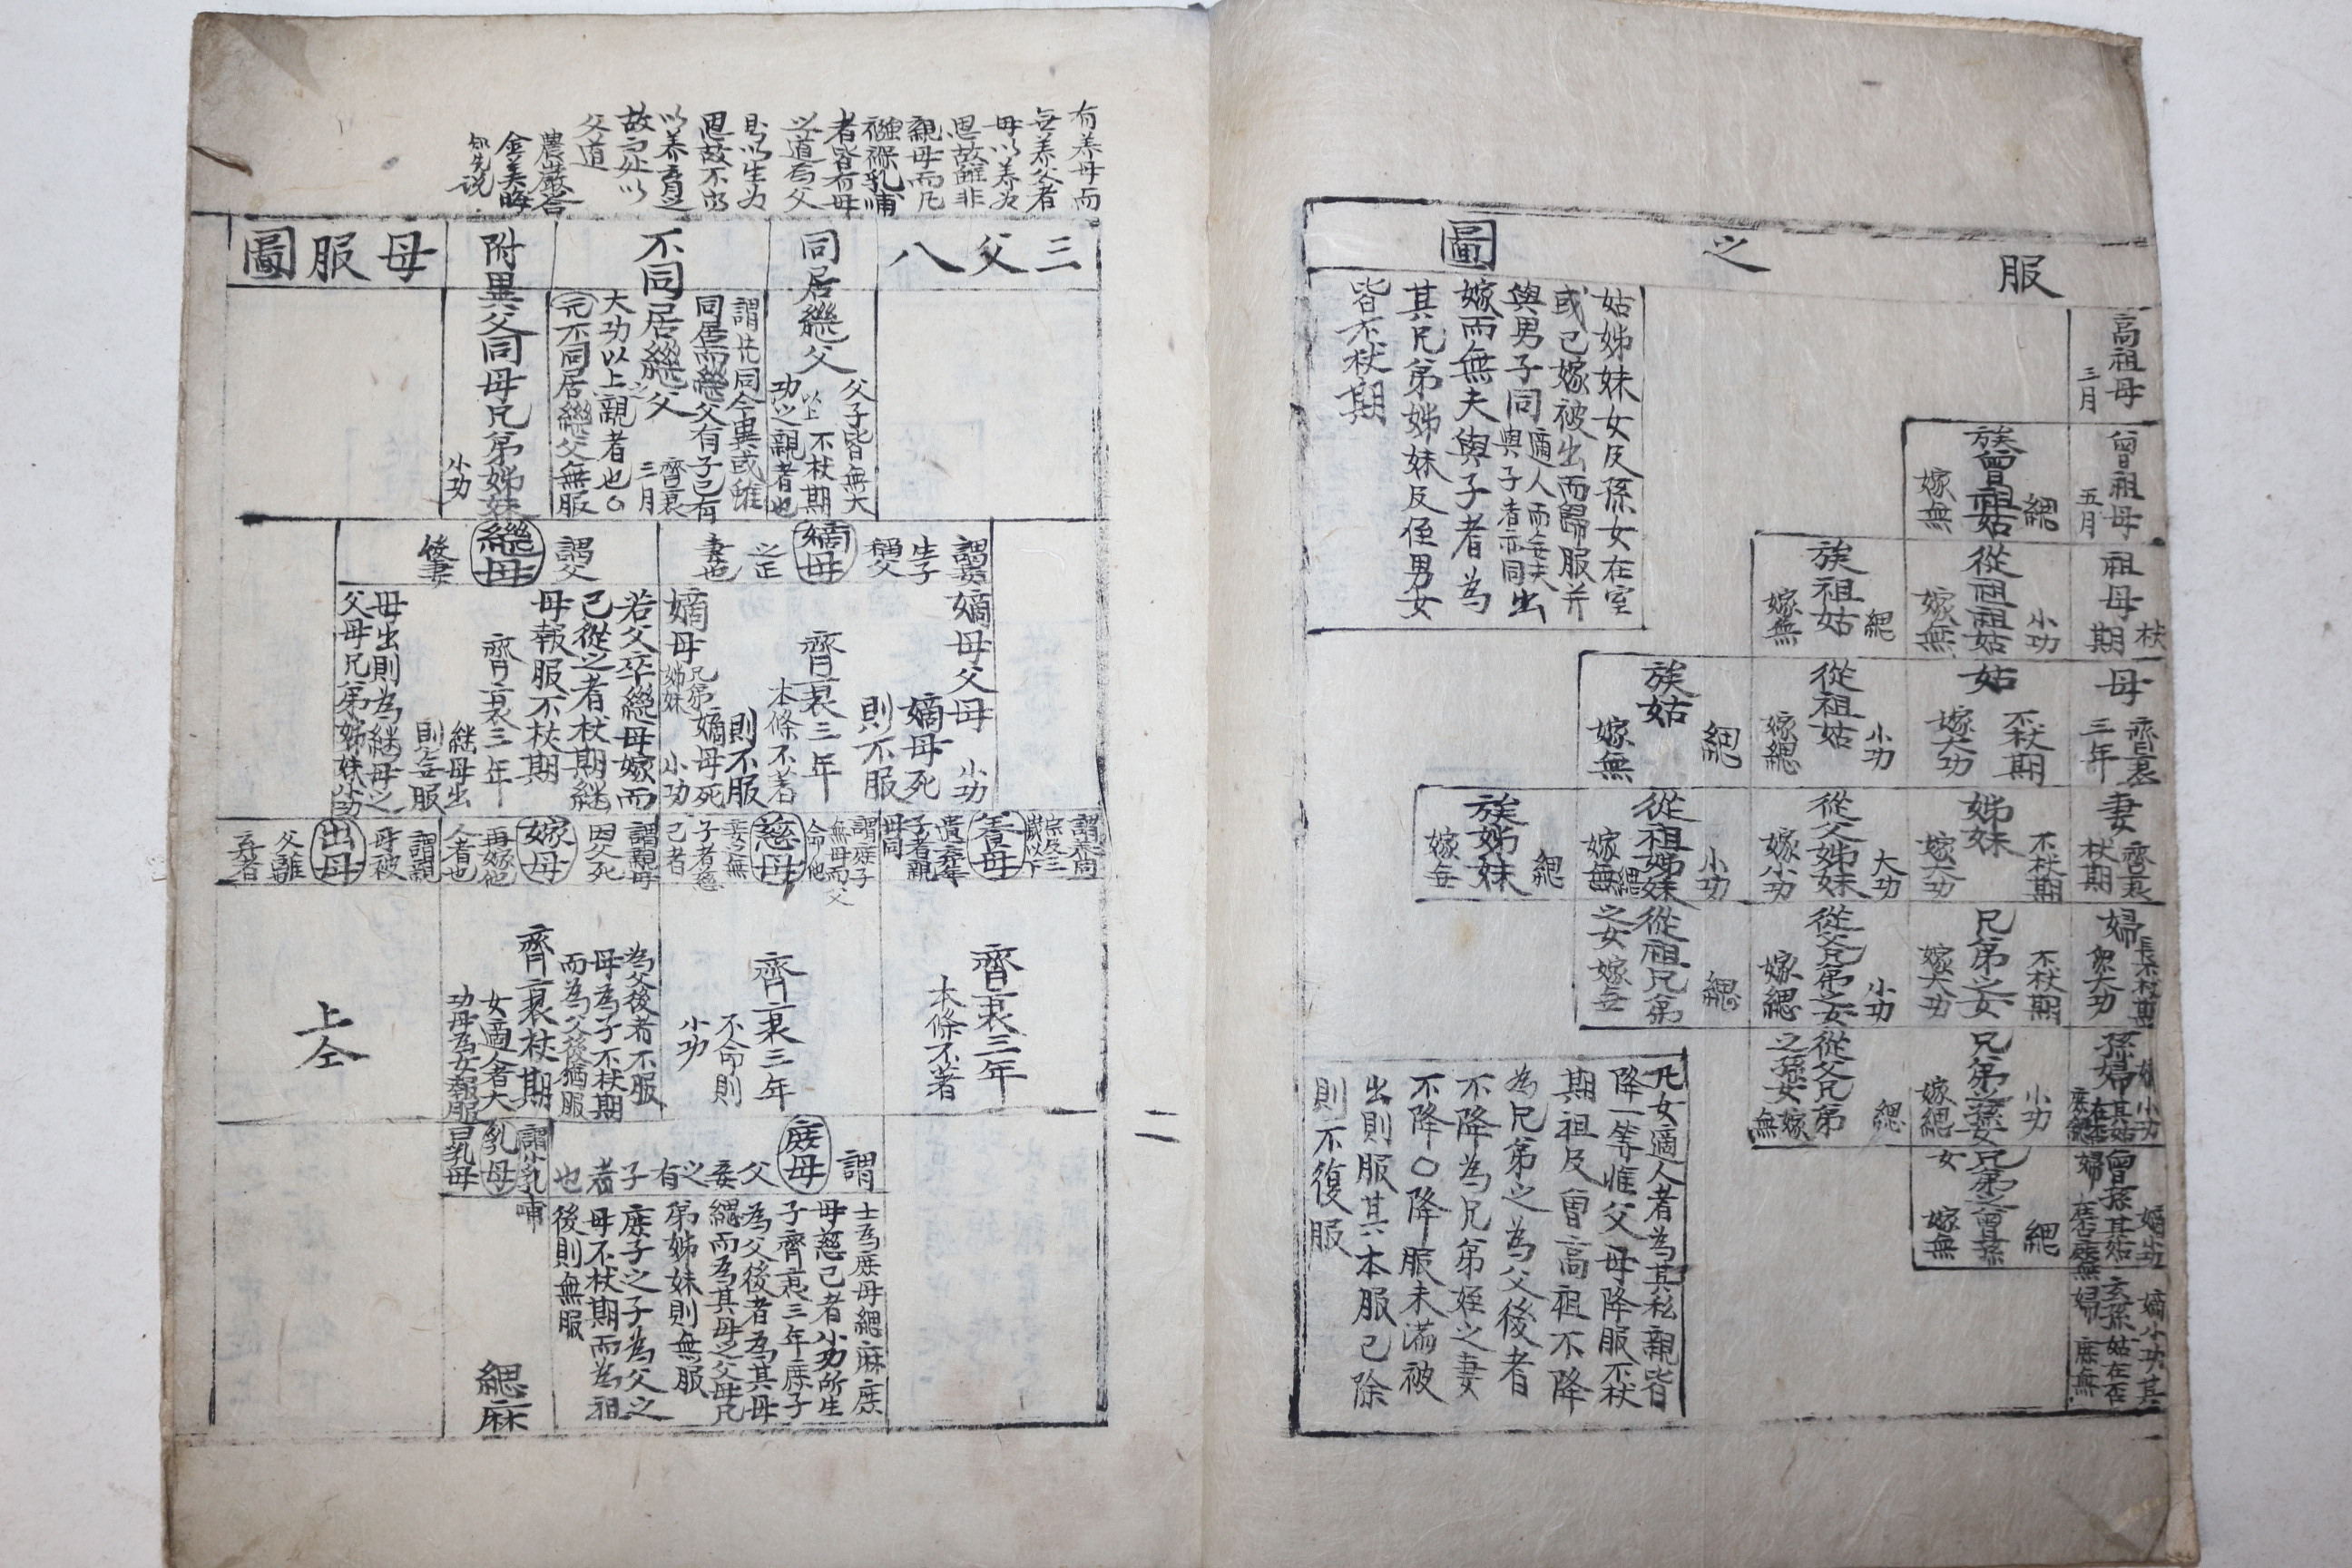 服之圖
高祖母
三月
曾祖母
五月
祖母
杖
期
母
齊衰
三年
妻
齊衰
杖期
婦
長不杖期
衆大功
孫婦
族曾祖姑
緦
嫁無
從祖祖姑
小功
嫁無
姑
不杖期
嫁大功
姊妹
不杖期
嫁大功
兄弟之女
不杖期
嫁大功
兄弟之孫女
小功
嫁緦
兄弟之曾孫
女
緦
嫁無
族祖姑
緦
嫁無
從祖姑
小功
嫁緦
從父姊妹
大功
嫁小功
從父兄弟之女
小功
嫁緦
從父兄弟
之孫女
緦
嫁無
族姑
緦
嫁無
從祖姊妹
小功
從祖兄弟
之女
緦
嫁無
族姊妹
緦
嫁無
姑姊妹女及孫女在室
或已嫁被出而歸服並
與男子同
適人而無夫
與子者亦同
出
嫁而無夫與子者為
其兄弟姊妹及侄男女
皆不杖期
凡女適人者為其私親皆
降一等惟父母降服不杖
期祖及曾高祖不降
為兄弟之為父後者
不降為兄弟姪之妻
不降○降服未滿被
出則服其本服已除
則不復服
二
有養母而
無養父者
母以養為
恩故雖非
親母而凡
襁褓乳哺
者皆有母
之道為父
則以生為
恩故不以
父道
農巖答
金美晦
三父八
母服圖
同居繼父
父子皆無大
功之親者也
不杖期
不同居繼父
謂先同今異或雖
同居而繼父有子己有
大功以上親者也○
元不同居繼父無服
齊衰
三月
附異父同母兄弟姊妹
小功
嫡母
謂妾
生子
稱父
之正
妻也
嫡母父母
小功
嫡母死
則不服
齊衰三年
本條不著
嫡母
兄弟
姊妹
小功
嫡母死
則不服
繼母
謂父
後妻
若父卒繼母嫁而
己從之者杖期繼
母報服不杖期
齊衰三年
繼母出
則無服
母出則為繼母之
父母兄弟姊妹小功
養母
齊衰三年
本條不著
慈母
謂庶子
無母而父
命他
妾之無
子者慈
己者
齊衰三年
不命則
小功
嫁母
謂親母
因父死
再嫁他
人者也
為父後者不服
母為子不杖期
而為父後猶服
齊衰杖期
女適人者大
功母為女報服
出母
謂親
母被
父離
棄者
上仝
庶母
謂
父
妾
之
有
子
者
也
士為庶母緦麻庶
母慈己者小功所生
子齊衰三年庶子
為父後者為其母
緦而為其母之父母兄
弟姊妹則無服
庶子之子為父之
母不杖期而為祖
後則無服
乳母
謂小乳哺
曰乳母
緦麻